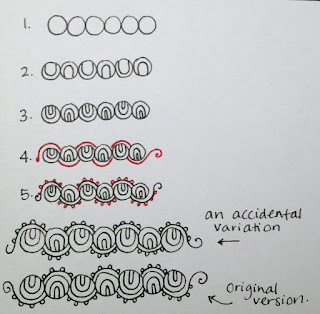 1.
2.
3.
4.
5.
an accidental
variation
original
version.